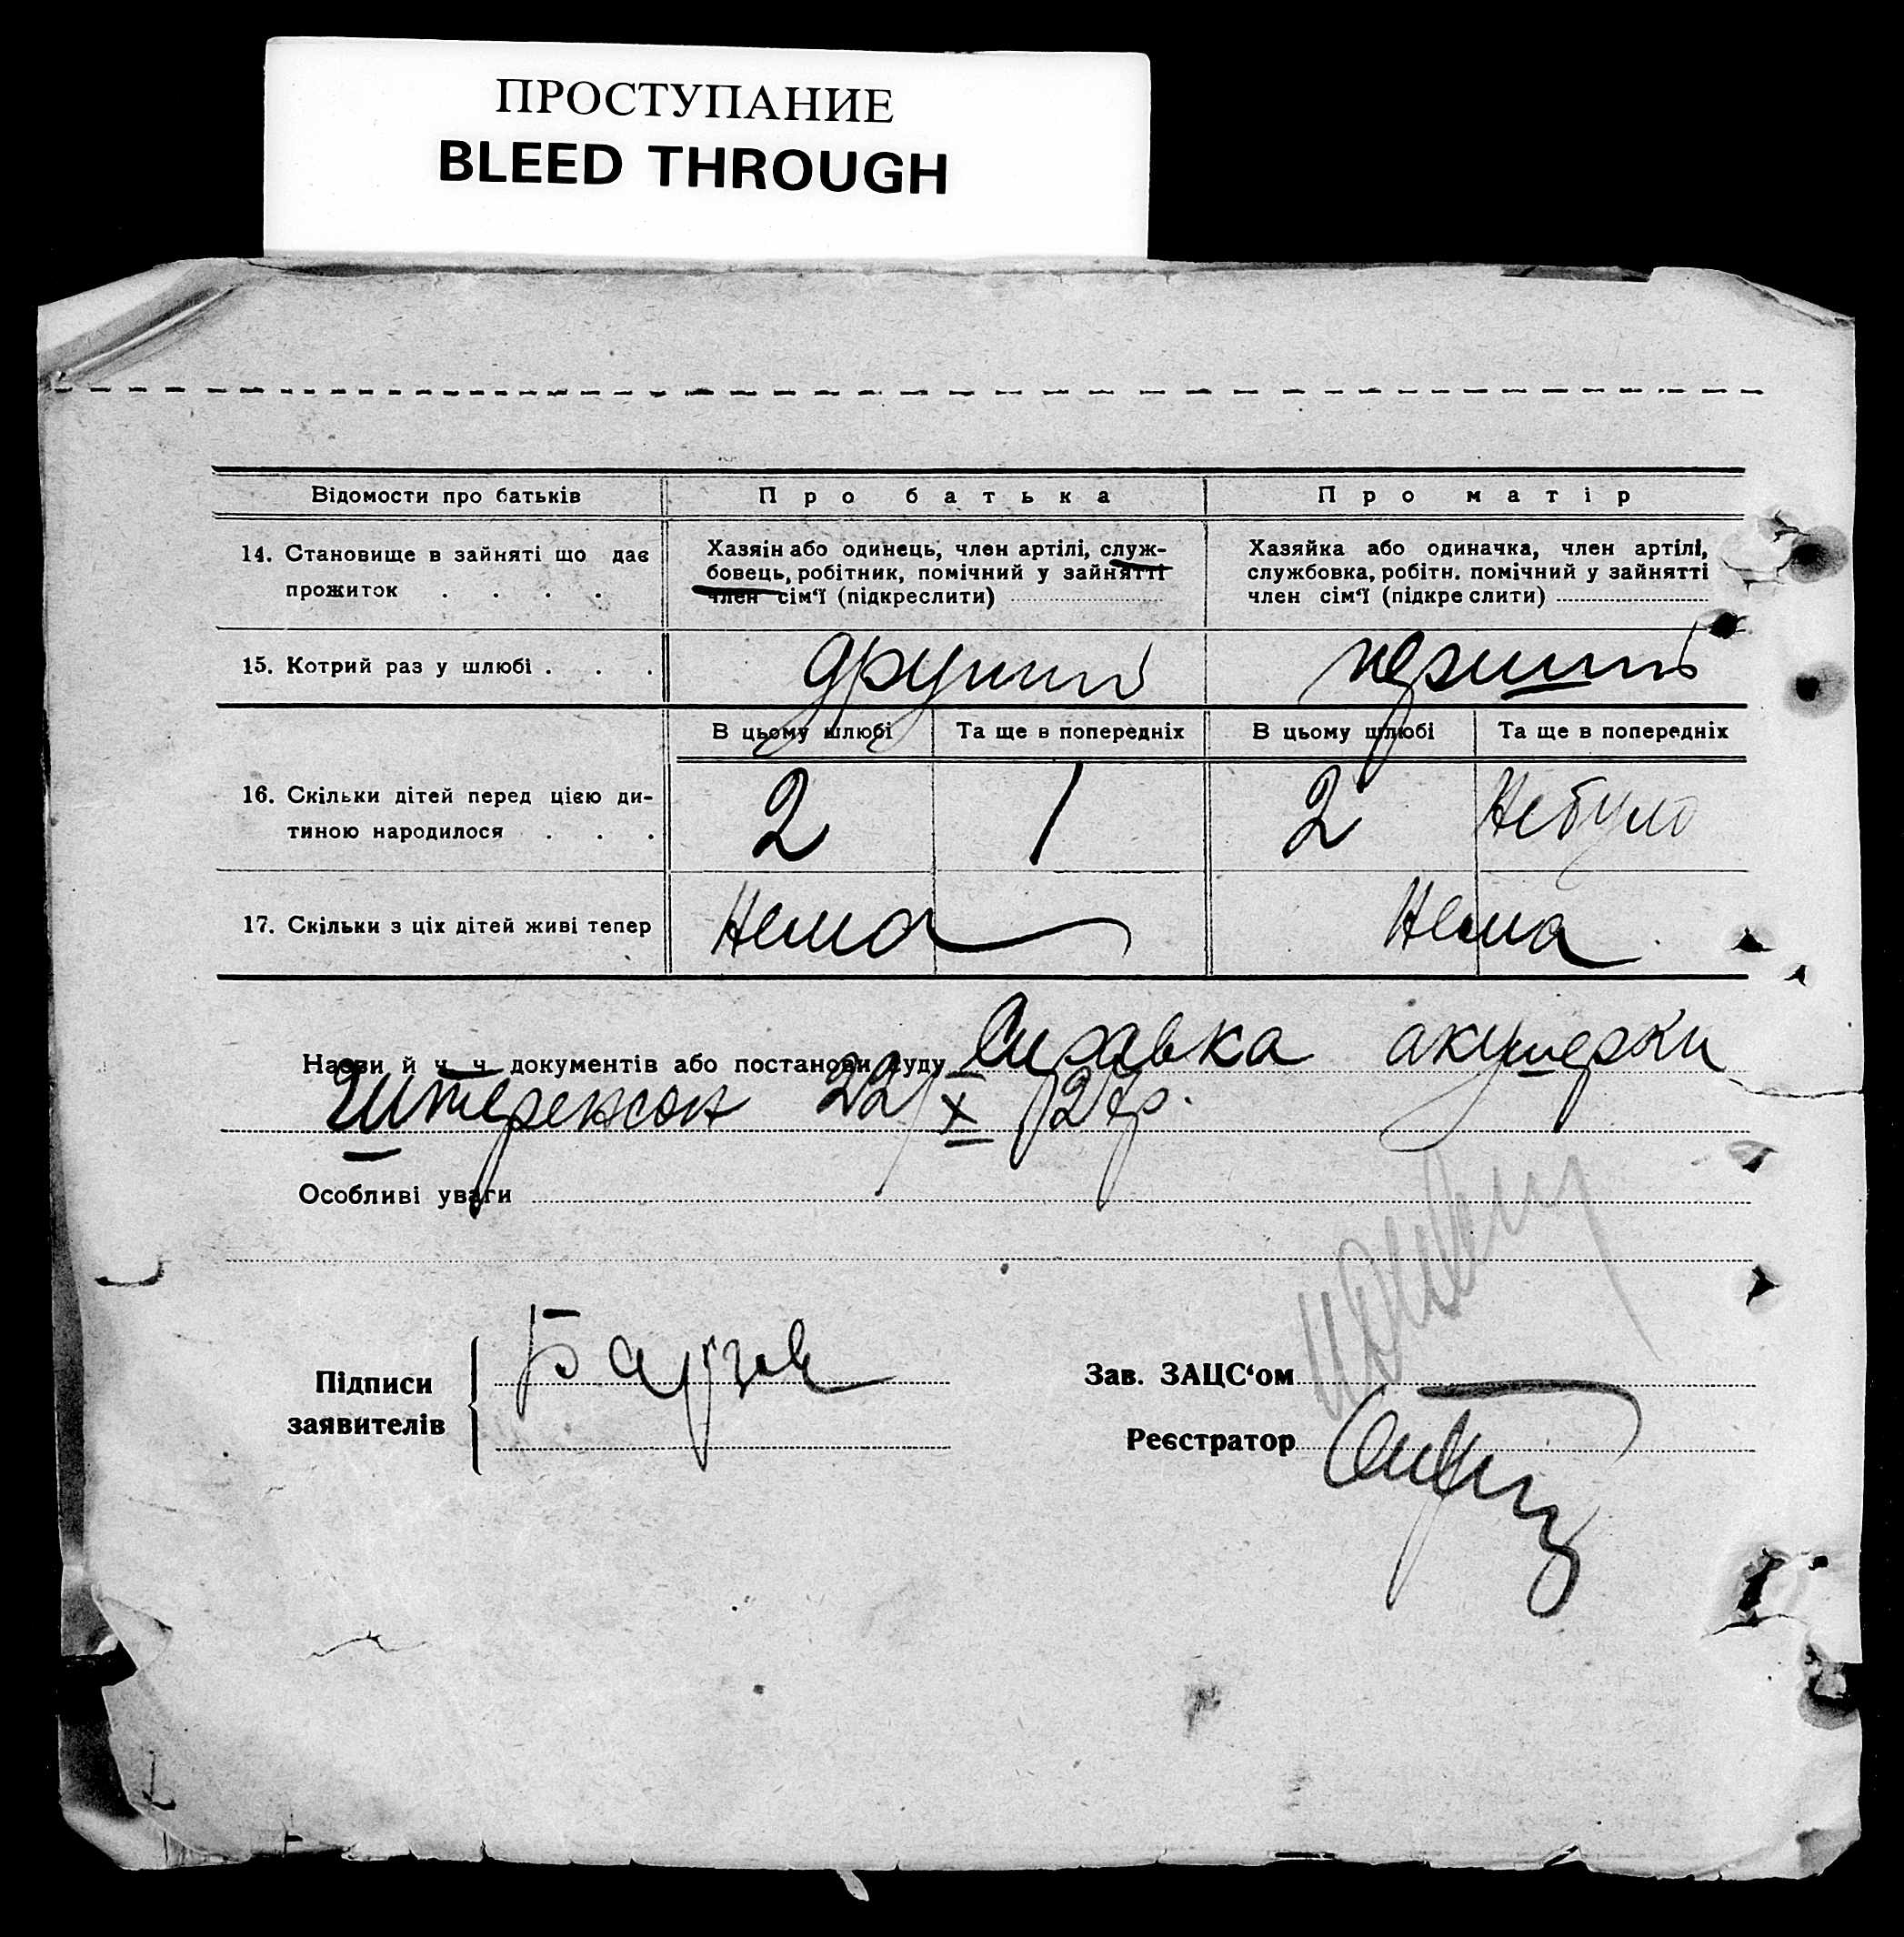 ПРОСТУПАНИЕ
BLEED THROUGH
Відомости про батьків
Про батька
Про матір
14. Становище в зайняті що дає
прожиток . . . .
Хазяїн або одинець, член артілі, служ-
бовець, робітник, помічний у зайнятті
член сім'ї (підкреслити)
Хазяйка або одиначка, член артілі,
службовка, робітн. помічний у зайнятті
член сім'ї (підкреслити)
15. Котрий раз у шлюбі . . .
другий
перший
В цьому шлюбі
Та ще в попередніх
В цьому шлюбі
Та ще в попередніх
16. Скільки дітей перед цією ди-
тиною народилося . . .
2
1
2
Небуло
17. Скільки з ціх дітей живі тепер
Нема
Нема
Назви й ч. ч. документів або постанови суду Справка акушерки
22/X 27р.
Особливі уваги
Підписи
заявителів
Зав. ЗАЦС'ом
Реєстратор